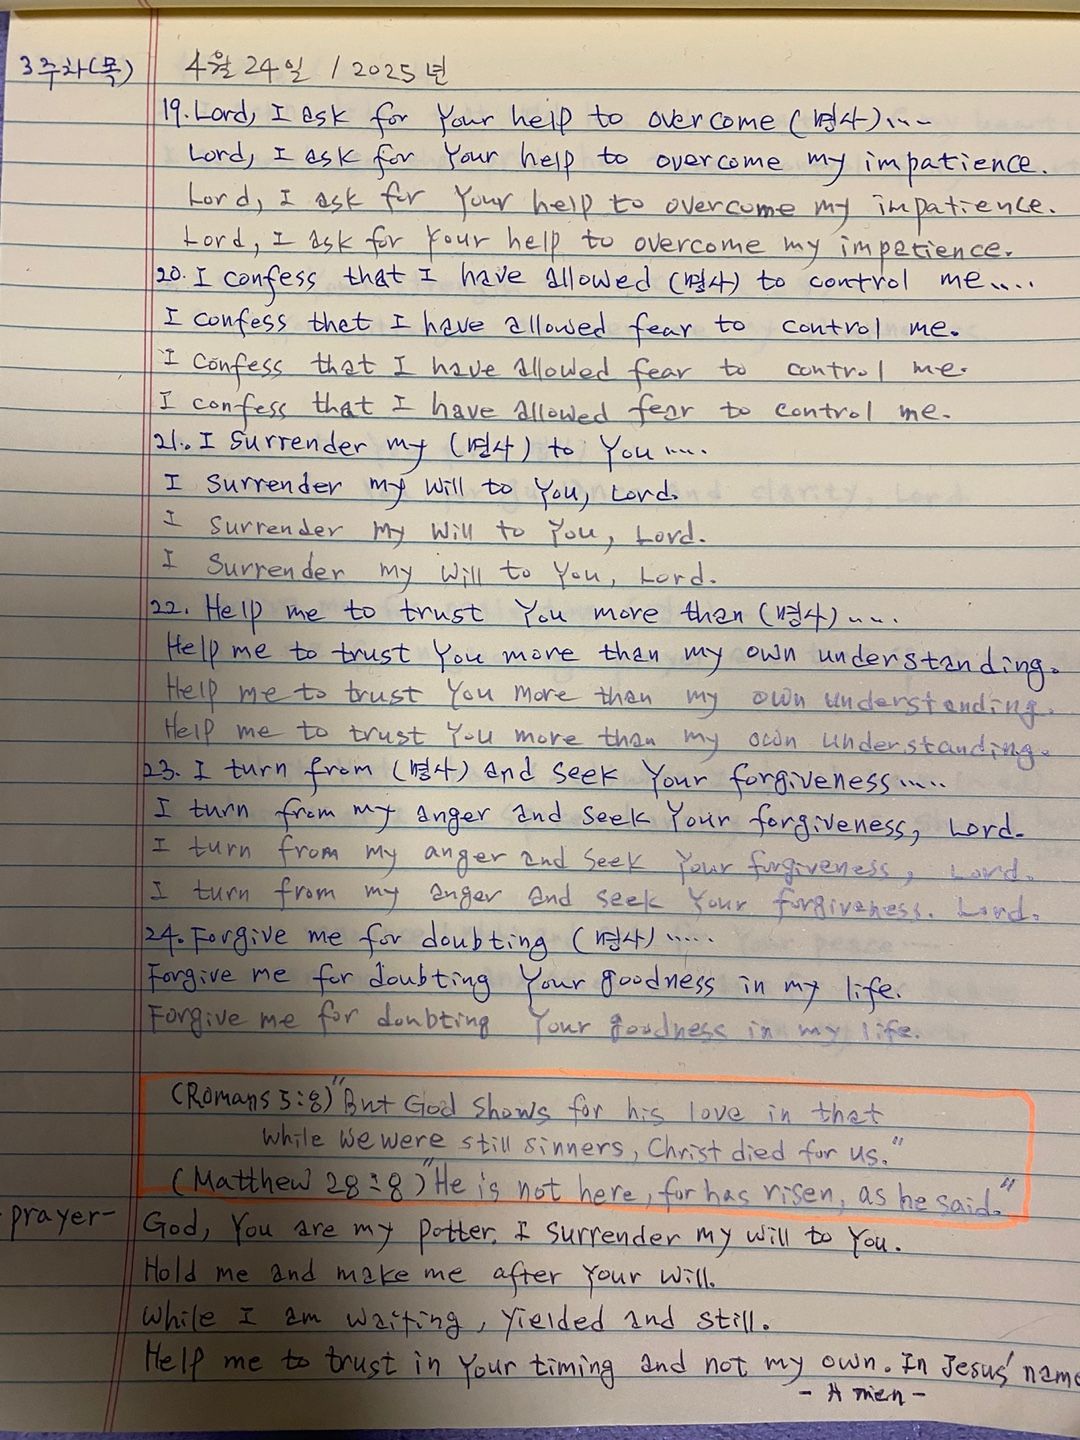 3주차(목) 4월 24일 / 2025년
19. Lord, I ask for Your help to overcome (명사)....
Lord, I ask for Your help to overcome my impatience.
Lord, I ask for Your help to overcome my impatience.
Lord, I ask for Your help to overcome my impatience.
20. I confess that I have allowed (명사) to control me.....
I confess that I have allowed fear to control me.
I confess that I have allowed fear to control me.
I confess that I have allowed fear to control me.
21. I surrender my (명사) to You.....
I surrender my will to You, Lord.
I surrender my will to You, Lord.
I surrender my will to You, Lord.
22. Help me to trust You more than (명사).....
Help me to trust You more than my own understanding.
Help me to trust You more than my own understanding.
Help me to trust You more than my own understanding.
23. I turn from (명사) and seek Your forgiveness.....
I turn from my anger and seek Your forgiveness, Lord.
I turn from my anger and seek Your forgiveness, Lord.
I turn from my anger and seek Your forgiveness. Lord.
24. Forgive me for doubting (명사).....
Forgive me for doubting Your goodness in my life.
Forgive me for doubting Your goodness in my life.
(Romans 5:8) "But God shows for his love in that
while we were still sinners, Christ died for us."
(Matthew 28:8) "He is not here, for has risen, as he said."
-prayer- God, You are my potter. I surrender my will to You.
Hold me and make me after Your will.
While I am waiting, yielded and still.
Help me to trust in Your timing and not my own. In Jesus' name
- Amen -